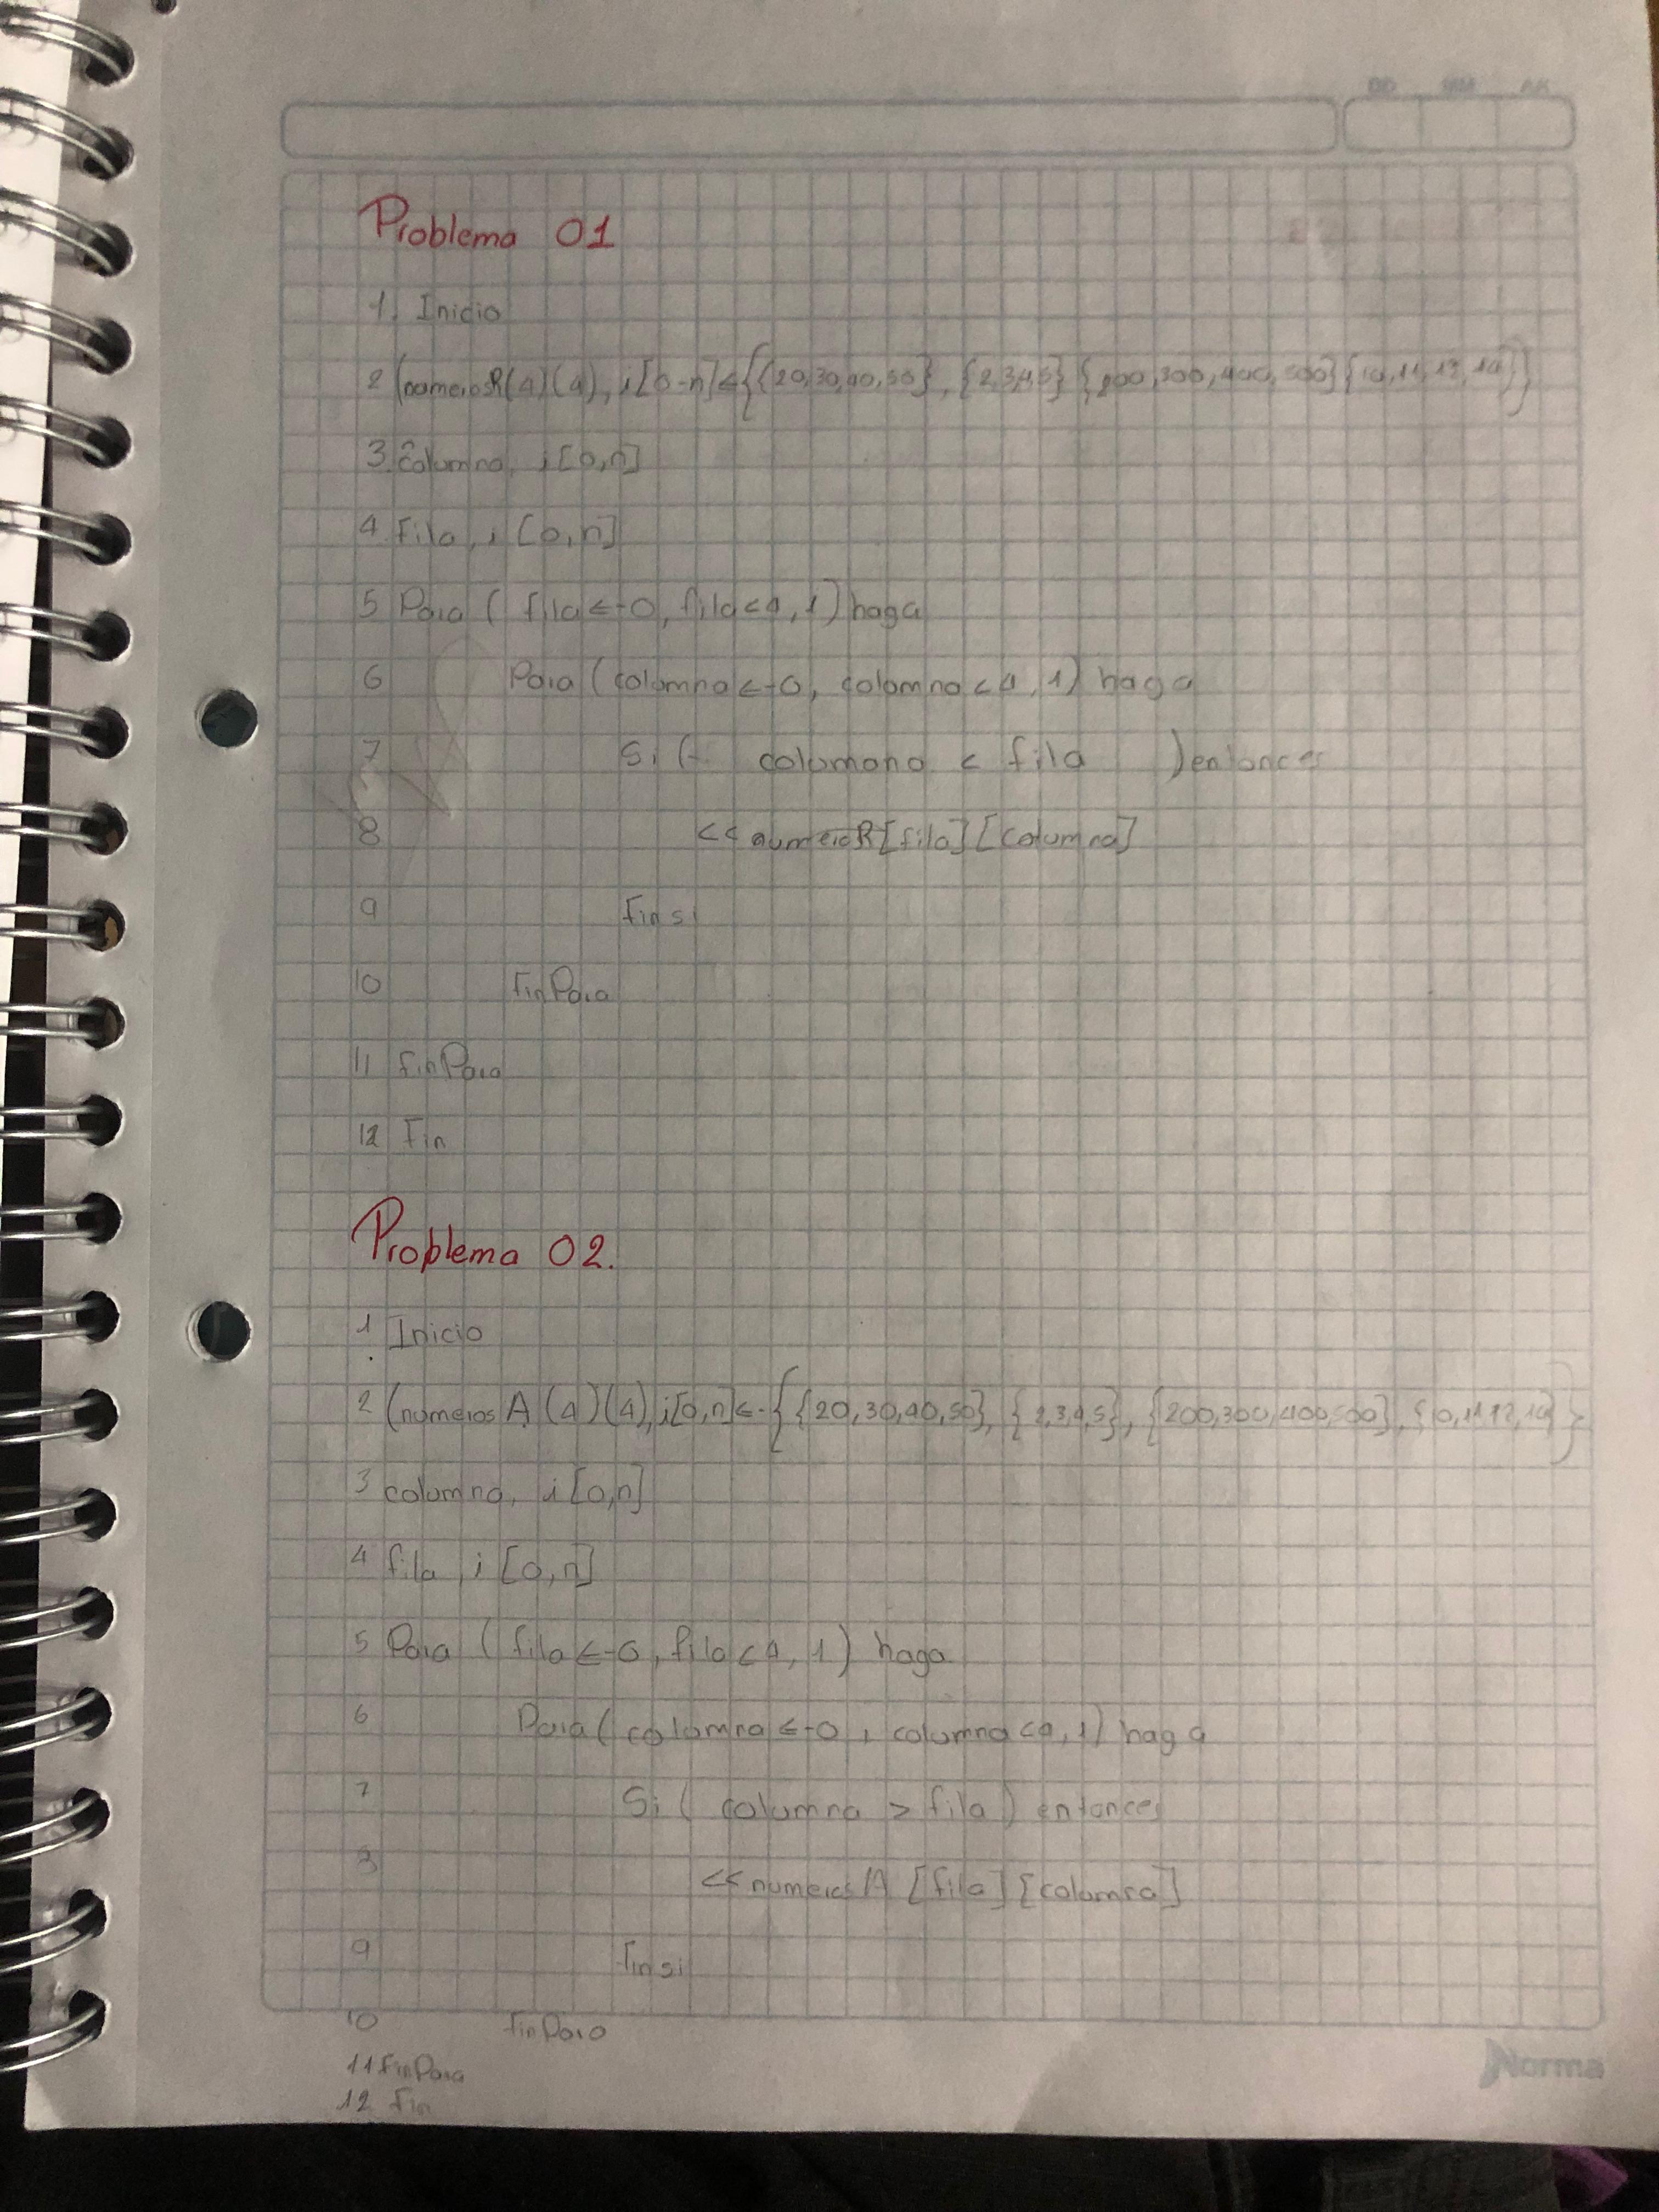 DD MM AA
Problema 01
1. Inicio
2 (numerosR(4)(4), i[0-n]<-{{20,30,40,50}, {2,3,4,5} {200,300,400,500}{10,11,12,14}}
3. columna, i[0,n]
4 fila, i [0,n]
5 Para ( fila<-0, fila<4, 1) haga
6 Para (columna<-0, columna<4, 1) haga
7 Si ( columana < fila ) entonces
8 << numeroR[fila][columna]
9 Fin si
10 FinPara
11 finPara
12 Fin
Problema 02.
1 Inicio
2 (numerosA(4)(4), i[0,n]<-{{20,30,40,50}, {2,3,4,5}, {200,300,400,500}, {10,11,12,14}}
3 columna, i[0,n]
4 fila, i [0,n]
5 Para (fila<-0, fila<4, 1) haga
6 Para( columna<-0, columna<4, 1) haga
7 Si ( columna > fila ) entonces
8 << numerosA [fila][columna]
9 finsi
10 finPara
11 FinPara
12 Fin
Norma